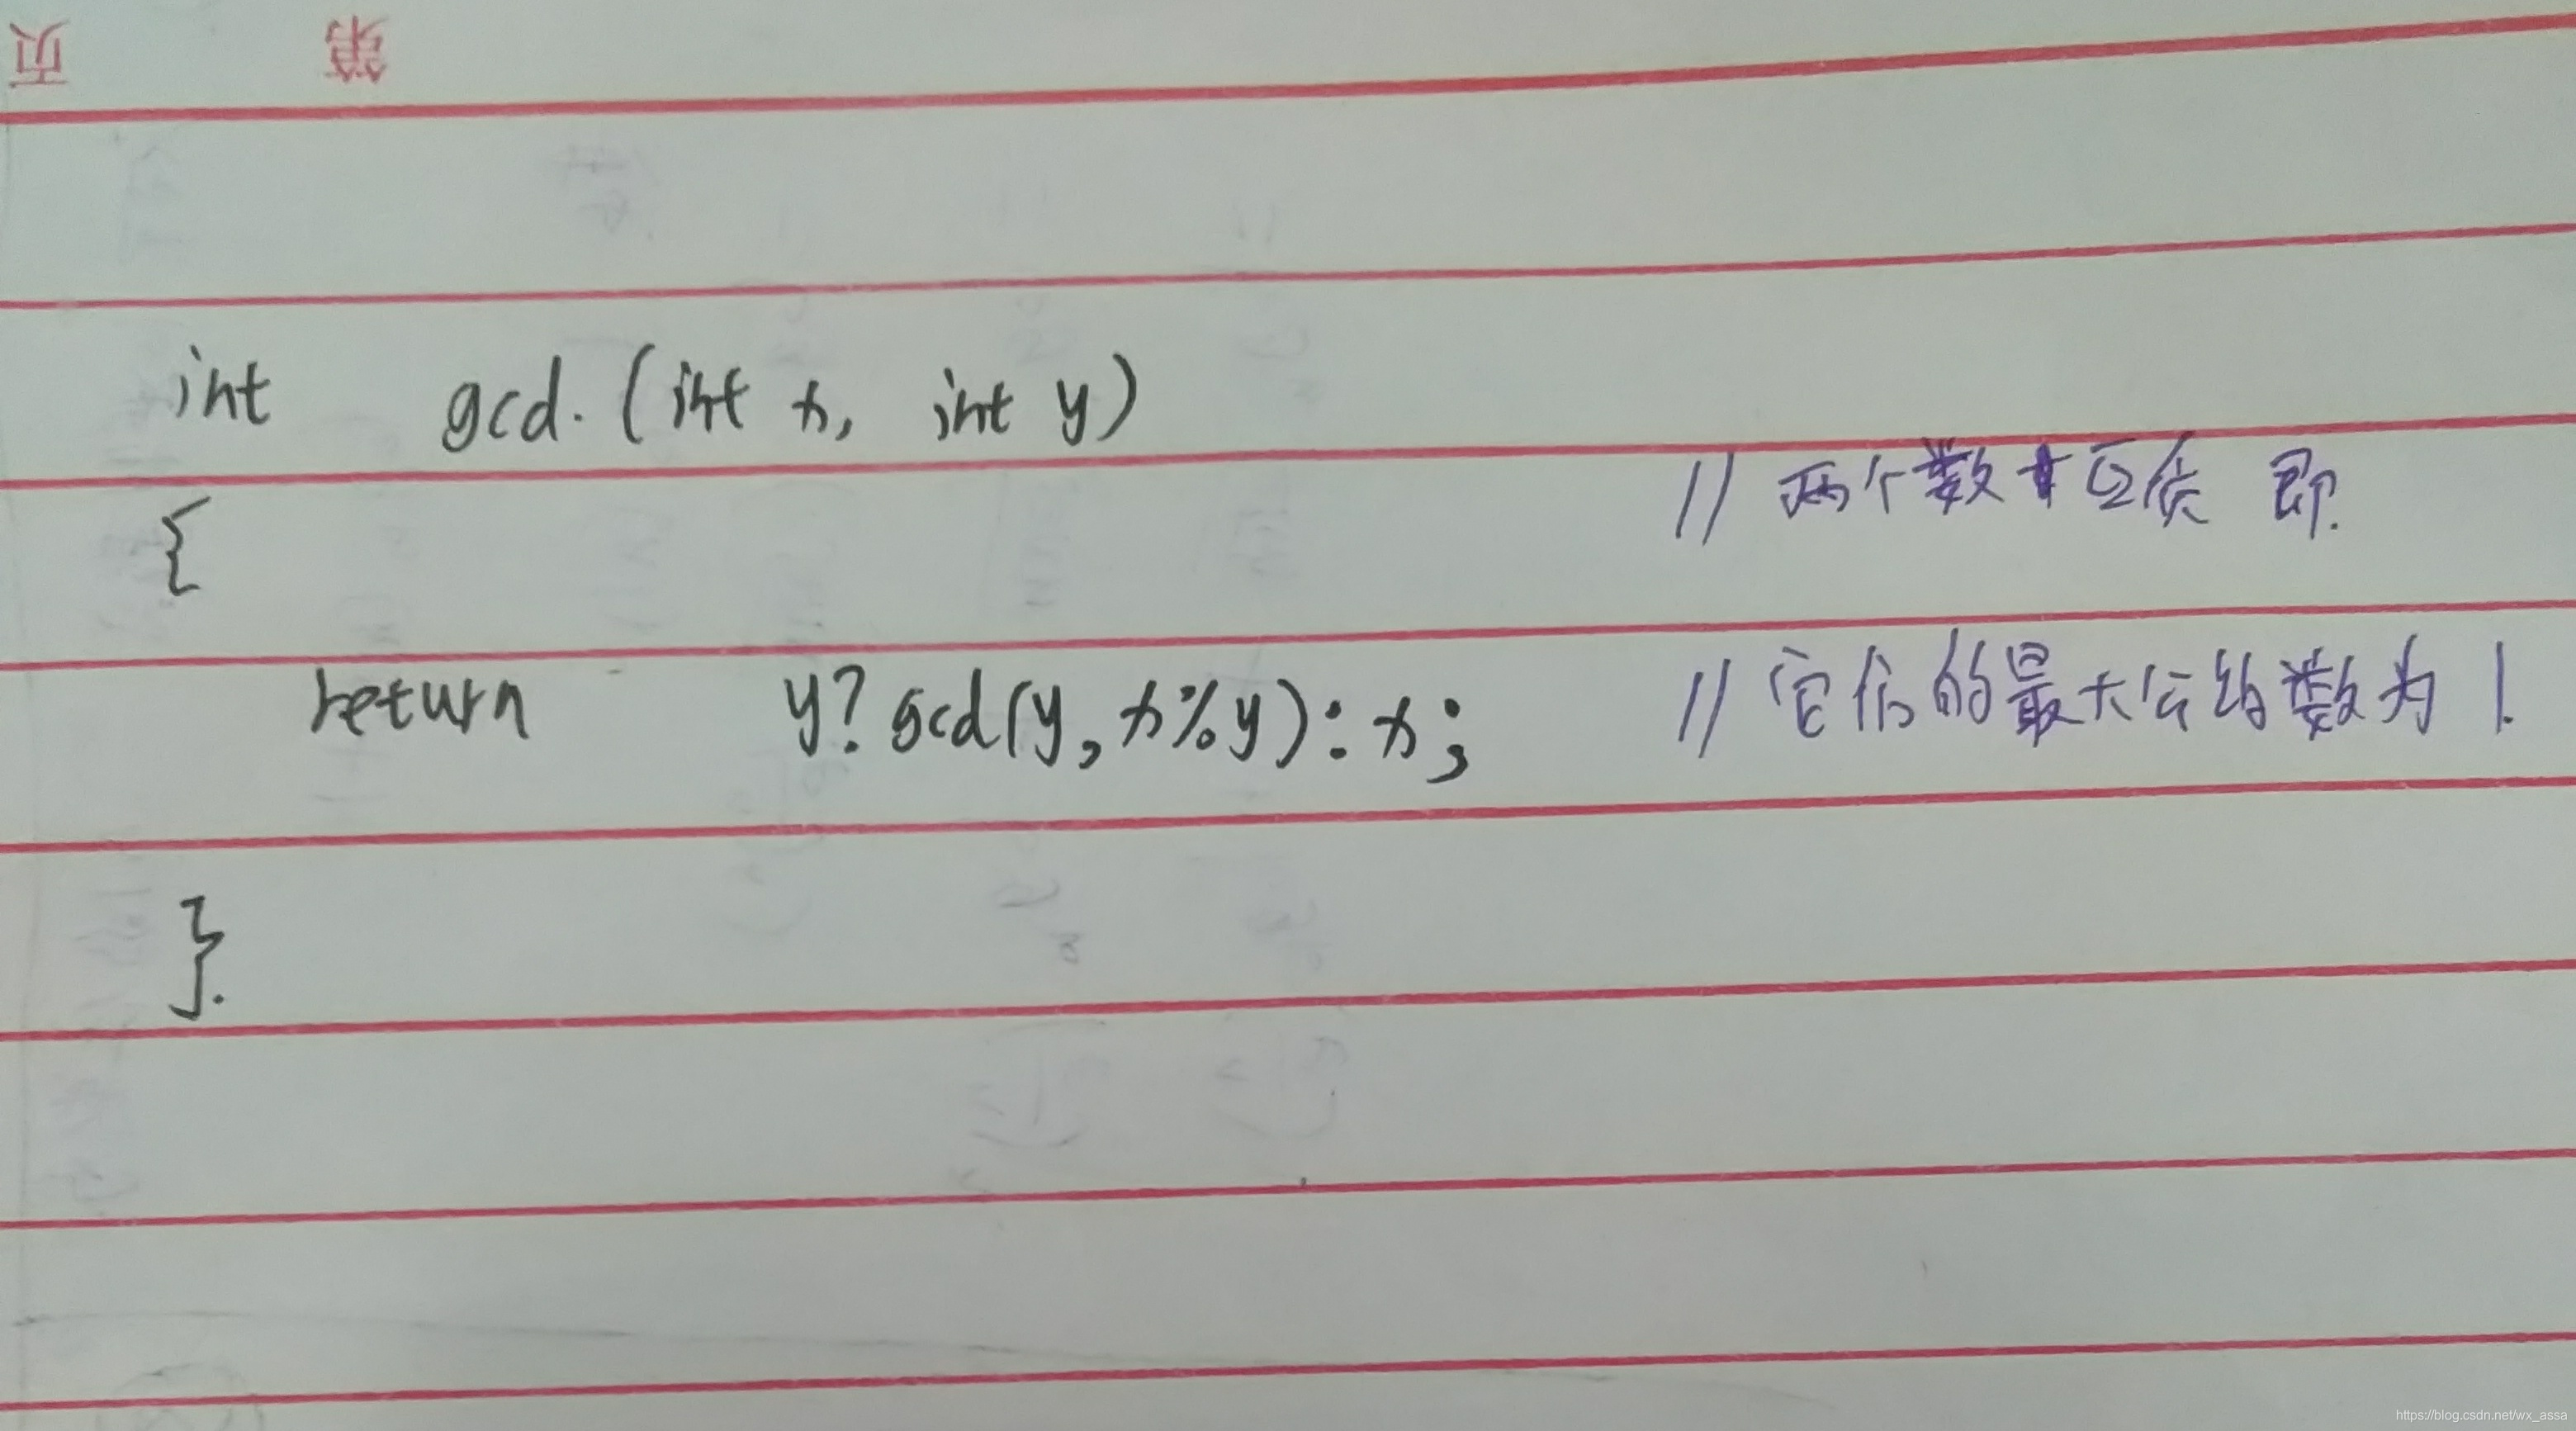 第 页
int gcd.(int x, int y)
{ // 两个数互质 即.
return y? gcd(y, x%y) : x; // 它们的最大公约数为 1.
}.
https://blog.csdn.net/wx_assa